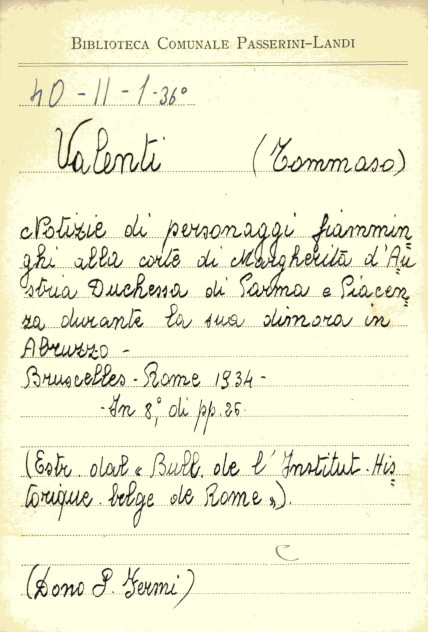 BIBLIOTECA COMUNALE PASSERINI-LANDI
40-11-1-36°
Valenti (Tommaso)
Notizie di personaggi fiammin=
ghi alla corte di Margherita d'Au=
stria Duchessa di Parma e Piacen=
za durante la sua dimora in
Abruzzo -
Bruscelles - Rome 1934 -
- In 8°, di pp. 26.
(Estr. dal « Bull. de l' Institut - His=
torique. belge de Rome »).
C
(Dono P. Fermi)